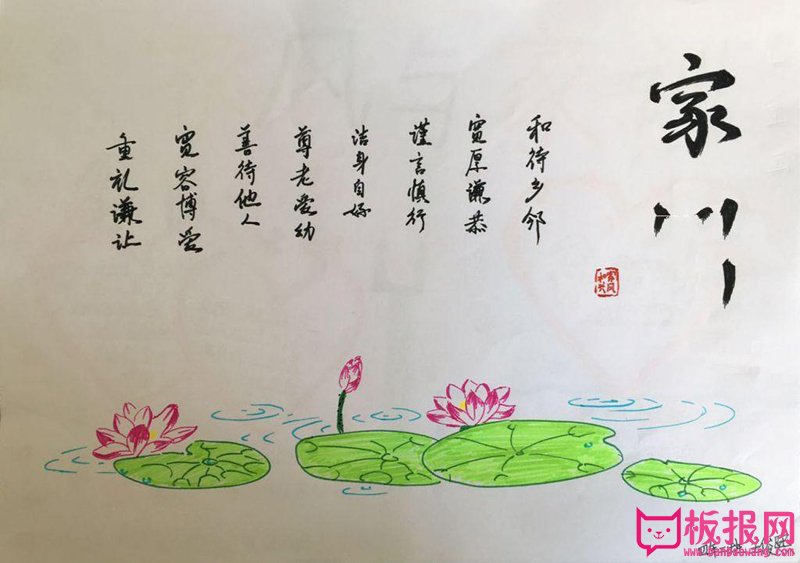 家训
和待乡邻
宽厚谦恭
谨言慎行
洁身自好
尊老爱幼
善待他人
宽容博爱
重礼谦让
板报网
www.banbaowang.com